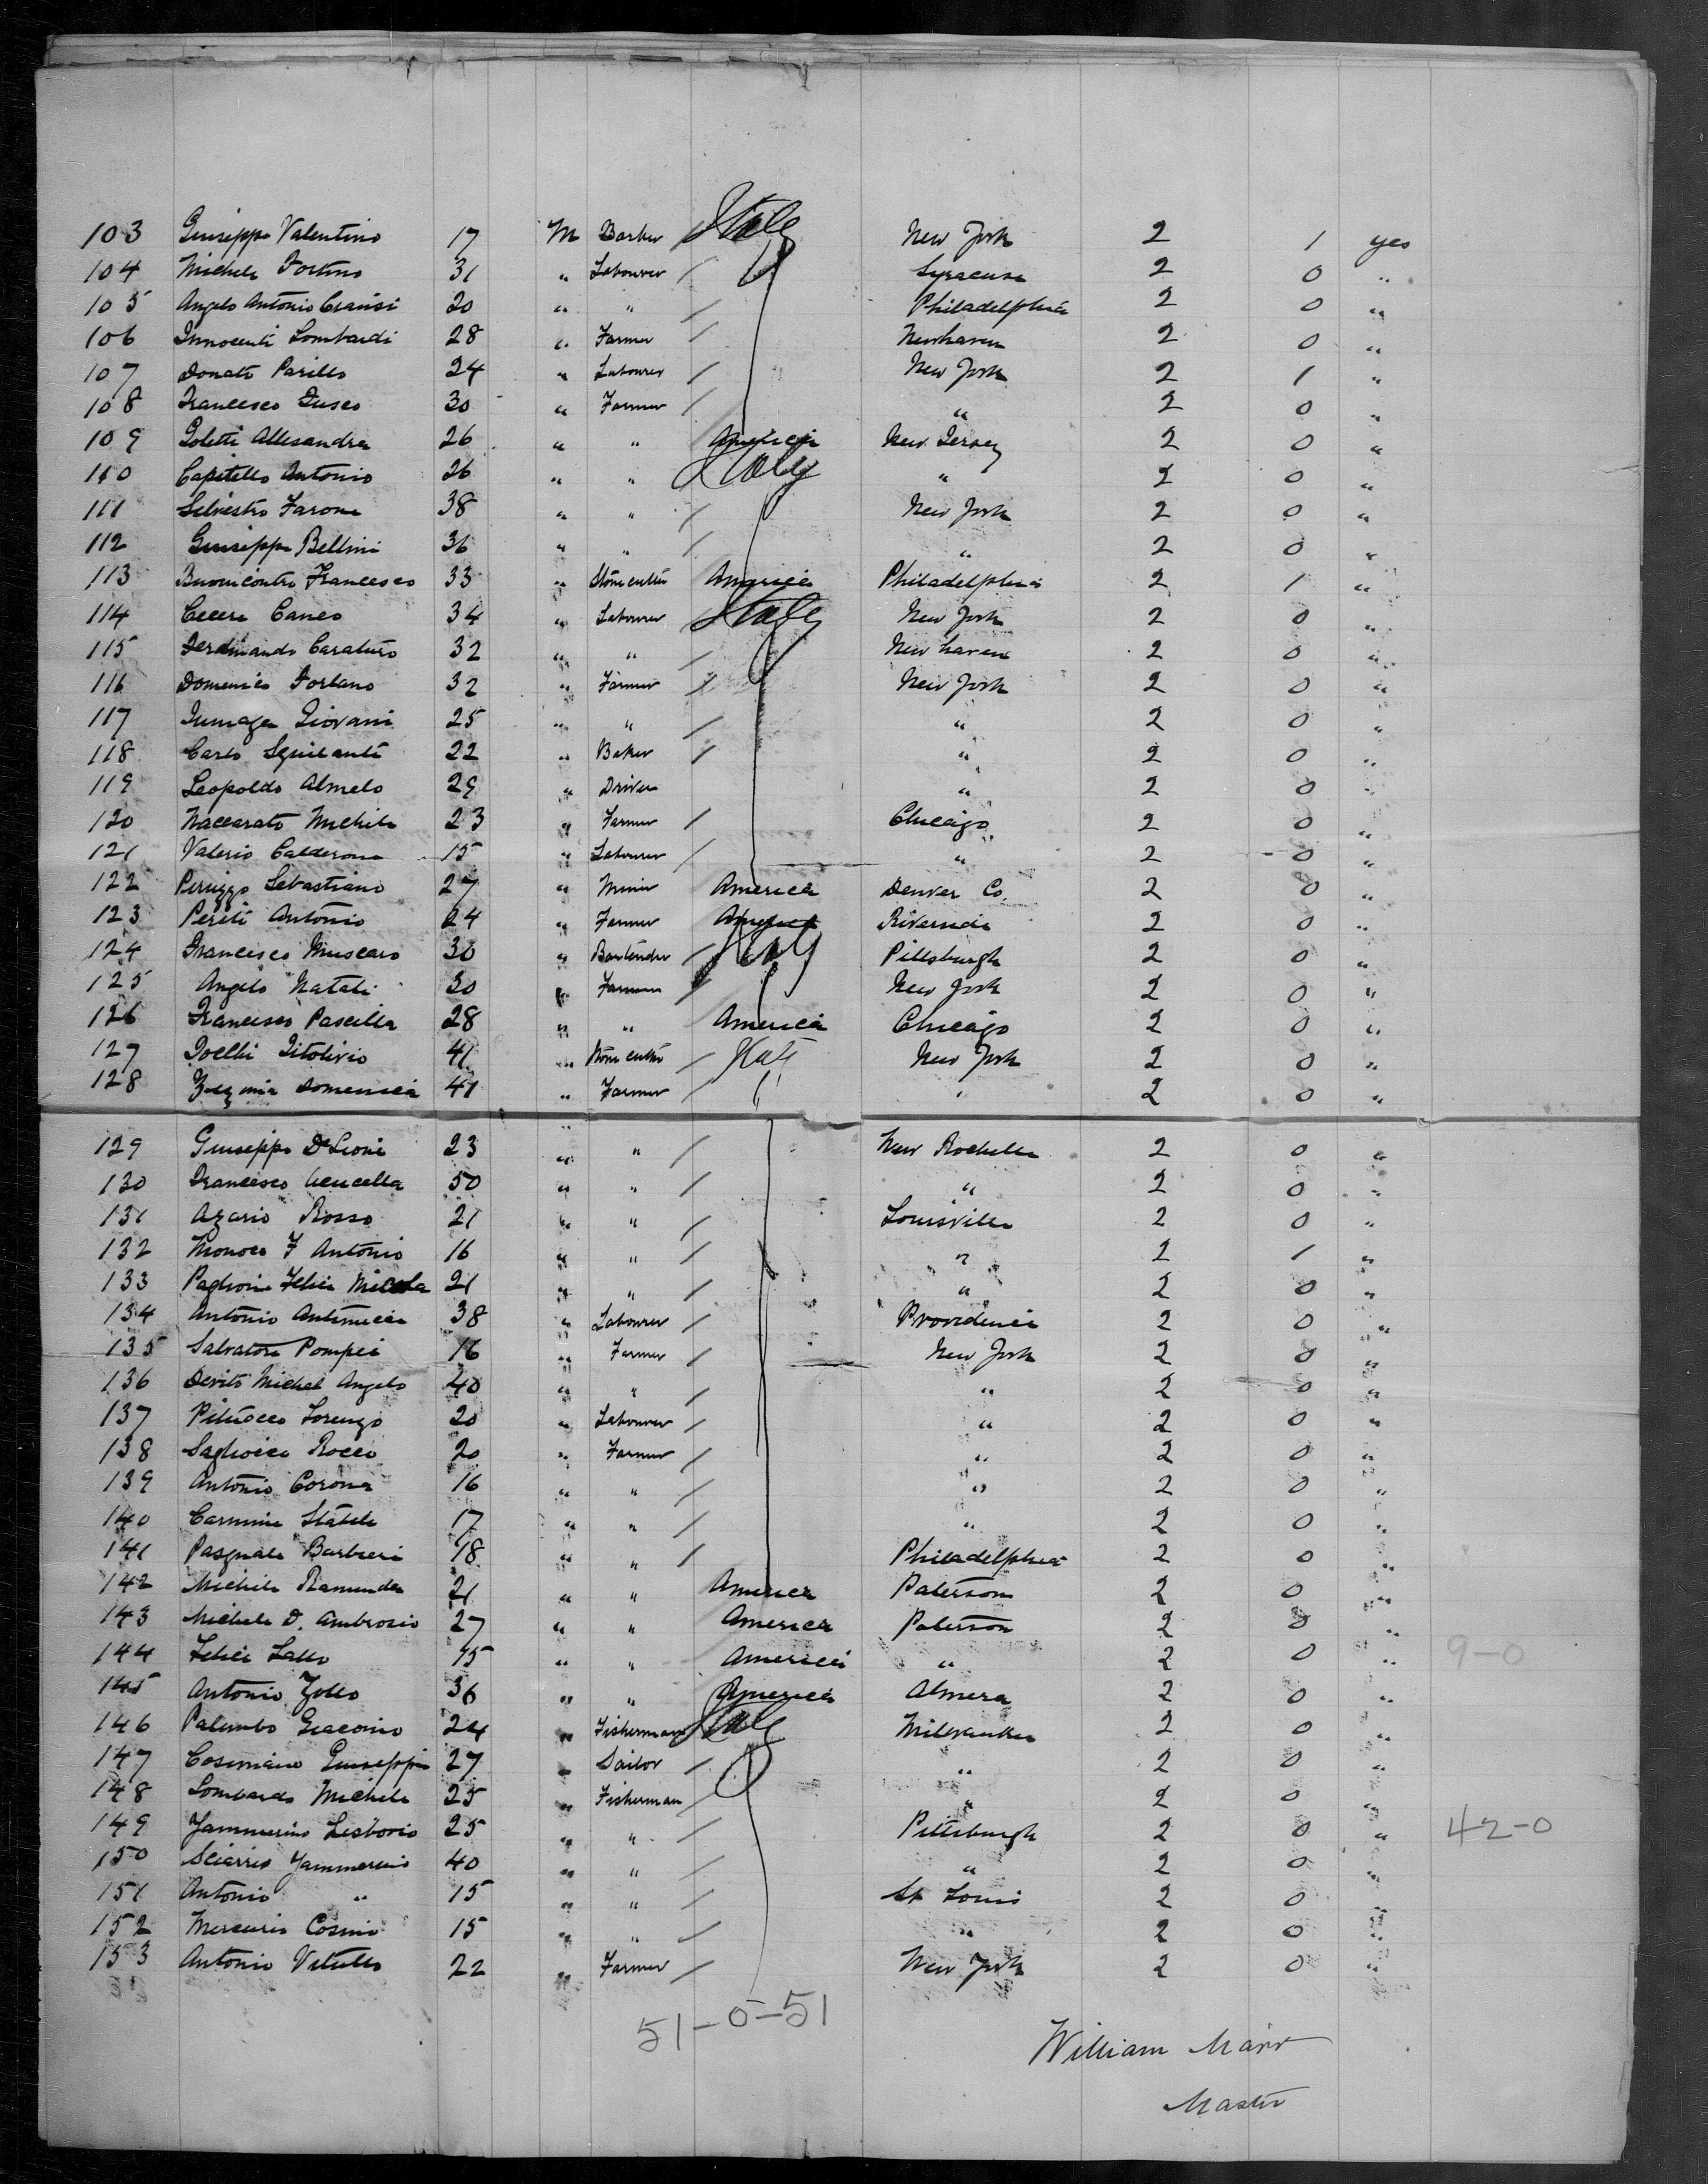 103 Giuseppe Valentino 17 M Barber / Italy New York 2 1 yes
104 Michele Fortino 31 " Labourer / Syracuse 2 0 "
105 Angelo Antonio 20 " " / Philadelphia 2 0 "
106 Innocenti Lombardi 28 " Farmer / Newhaven 2 0 "
107 Donato Parillo 24 " Labourer / New York 2 1 "
108 Francesco Fusco 30 " Farmer / " 2 0 "
109 Goletti Allesandra 26 " " America New Jersey 2 0 "
110 Capitello Antonio 26 " " Italy " 2 0 "
111 Silvestro Farone 38 " " / New York 2 0 "
112 Giuseppe Bellini 36 " " / " 2 0 "
113 Buonicontro Francesco 33 " Stonecutter America Philadelphia 2 1 "
114 Cecere Caneo 34 " Labourer / Italy New York 2 0 "
115 Ferdinando Caraturo 32 " " / New haven 2 0 "
116 Domenico Forlano 32 " Farmer / New York 2 0 "
117 Giovani 25 " " / " 2 0 "
118 Carlo Squilanti 22 " Baker / " 2 0 "
119 Leopoldo Almelo 29 " Driver " 2 0 "
120 Naccarato Michele 23 " Farmer / Chicago 2 0 "
121 Valerio Calderone 15 " Labourer / " 2 0 "
122 Peruzzo Sebastiano 27 " Miner America Denver Co. 2 0 "
123 Periti Antonio 24 " Farmer America Riverside 2 0 "
124 Francesco Muscaro 30 " Bartender / Italy Pittsburgh 2 0 "
125 Angelo Natale 30 " Farmer / New York 2 0 "
126 Francesco Pascilla 28 " " America Chicago 2 0 "
127 Titolivio 41 " Stonecutter / Italy New York 2 0 "
128 Domenica 41 " Farmer / " 2 0 "
129 Giuseppe De Leone 23 " " / New Rochelle 2 0 "
130 Francesco 50 " " / " 2 0 "
131 Azario Rosso 21 " " / Louisville 2 0 "
132 Monoco F Antonio 16 " " / " 2 1 "
133 Paglione Felice Nicola 21 " " / " 2 0 "
134 Antonio Antinucci 38 " Labourer / Providence 2 0 "
135 Salvatore Pompei 16 " Farmer / New York 2 0 "
136 Devito Michel Angelo 40 " " / " 2 0 "
137 Pitucco Lorenzo 20 " Labourer / " 2 0 "
138 Saglioico Rocco 20 " Farmer / " 2 0 "
139 Antonio Corona 16 " " / " 2 0 "
140 Carmine Stabile 17 " " / " 2 0 "
141 Pasquale Barbieri 18 " " / Philadelphia 2 0 "
142 Michele Ramunda 21 " " America Paterson 2 0 "
143 Michele D. Ambrosio 27 " " America Paterson 2 0 "
144 Felice Lallo 15 " " America " 2 0 " 9-0
145 Antonio Zollo 36 " " America Almera 2 0 "
146 Palumbo Giacomo 24 " Fisherman Italy Milwaukee 2 0 "
147 Cosimano Giuseppe 27 " Sailor / " 2 0 "
148 Lombardo Michele 25 " Fisherman / " 2 0 "
149 Jammerino Lisborio 25 " " / Pittsburgh 2 0 " 42-0
150 Sciarrio Jammerino 40 " " / " 2 0 "
151 Antonio " 15 " " / St Louis 2 0 "
152 Mercurio Cosmo 15 " " / " 2 0 "
153 Antonio Vitullo 22 " Farmer / New York 2 0 "
51-0-51
William Marr
Master